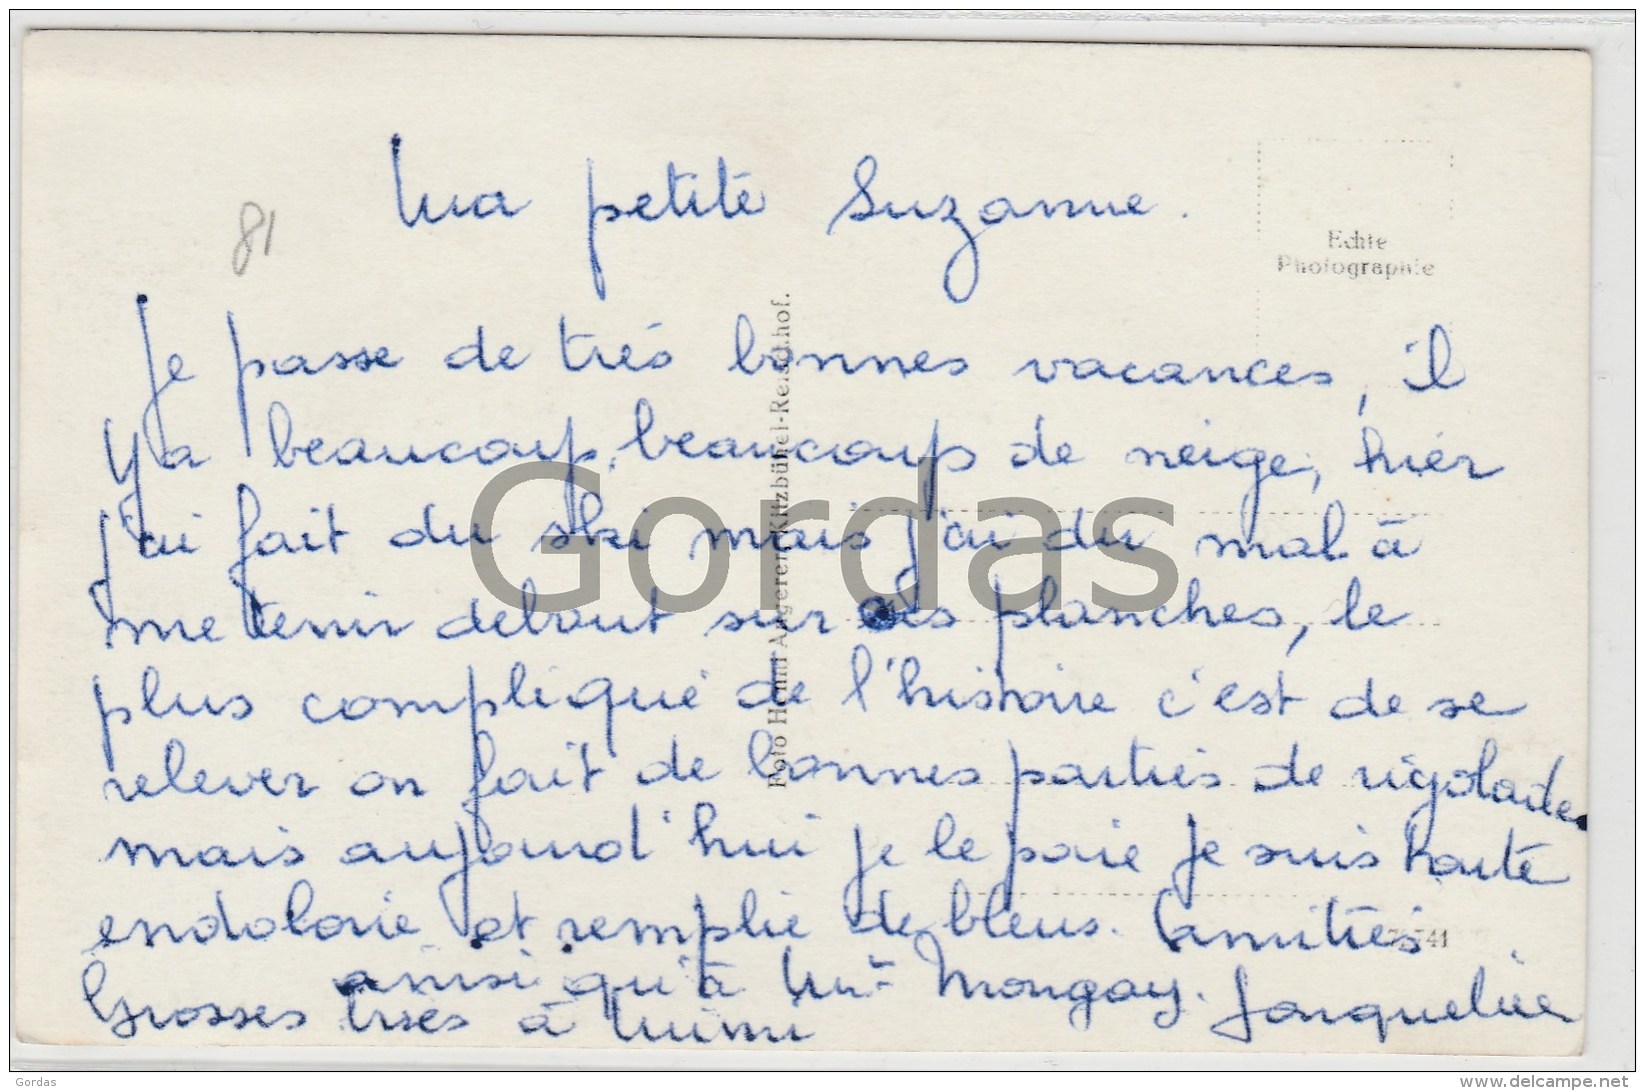 Ma petite Suzanne.
81
Echte
Photographie
Je passe de très bonnes vacances, il
y a beaucoup, beaucoup de neige, hier
j'ai fait du ski mais j'ai du mal à
me tenir debout sur ces planches, le
plus compliqué de l'histoire c'est de se
relever on fait de bonnes parties de rigolades
mais aujourd'hui je le paie je suis toute
endolorie et remplie de bleus. Amitiés
ainsi qu'à Mme Mongay. Jacqueline
Grosses bises à Mimi
Foto Henni Angerer Kitzbühel-Reischhof.
Gordas
Gordas
www.delcampe.net